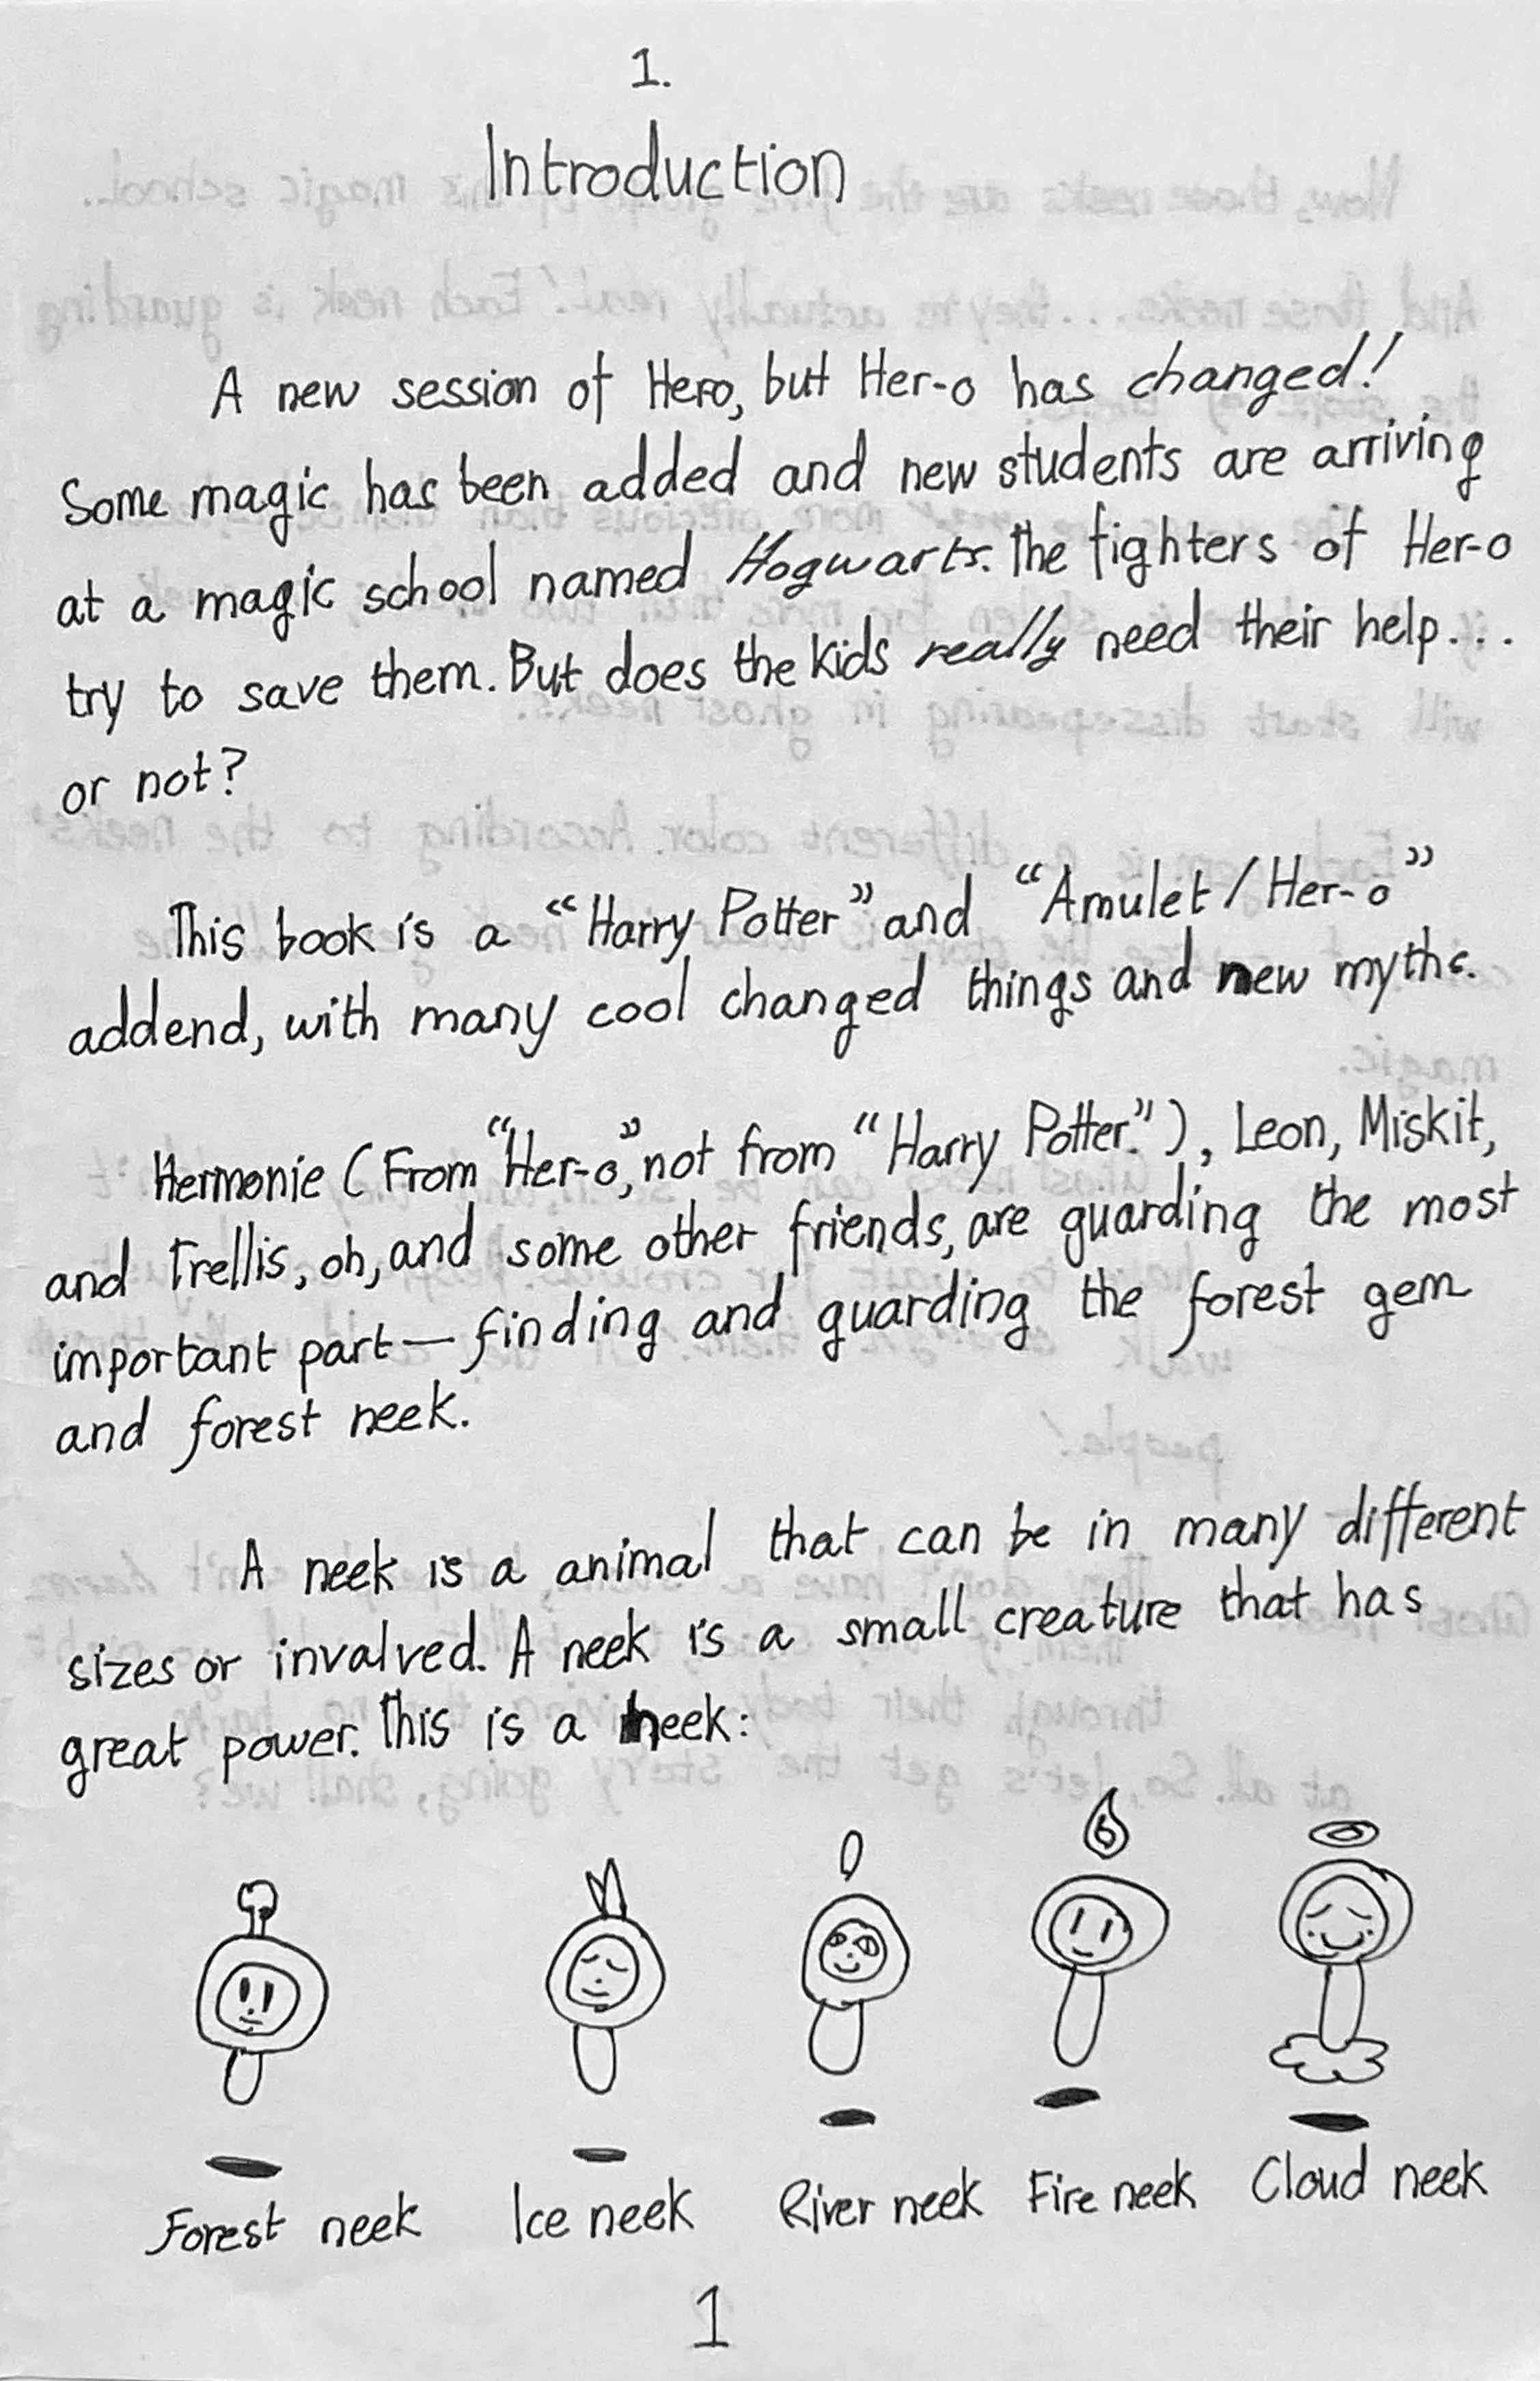 1.
Introduction
A new session of Hero, but Her-o has changed!
Some magic has been added and new students are arriving
at a magic school named Hogwarts. The fighters of Her-o
try to save them. But does the kids really need their help...
or not?
This book is a “Harry Potter” and “Amulet / Her-o”
addend, with many cool changed things and new myths.
Hermonie (From “Her-o”, not from “Harry Potter.”), Leon, Miskit,
and Trellis, oh, and some other friends, are guarding the most
important part— finding and guarding the forest gem
and forest neek.
A neek is a animal that can be in many different
sizes or involved. A neek is a small creature that has
great power. This is a neek:
Forest neek Ice neek River neek Fire neek Cloud neek
1